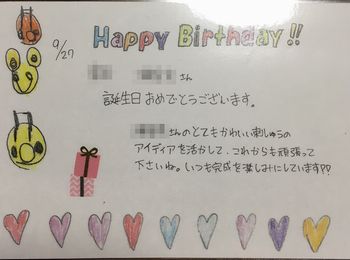 9/27
Happy Birthday!!
さん
誕生日おめでとうございます。
さんのとてもかわいい刺しゅうの
アイディアを活かして、これからも頑張って
下さいね。いつも完成を楽しみにしています!!